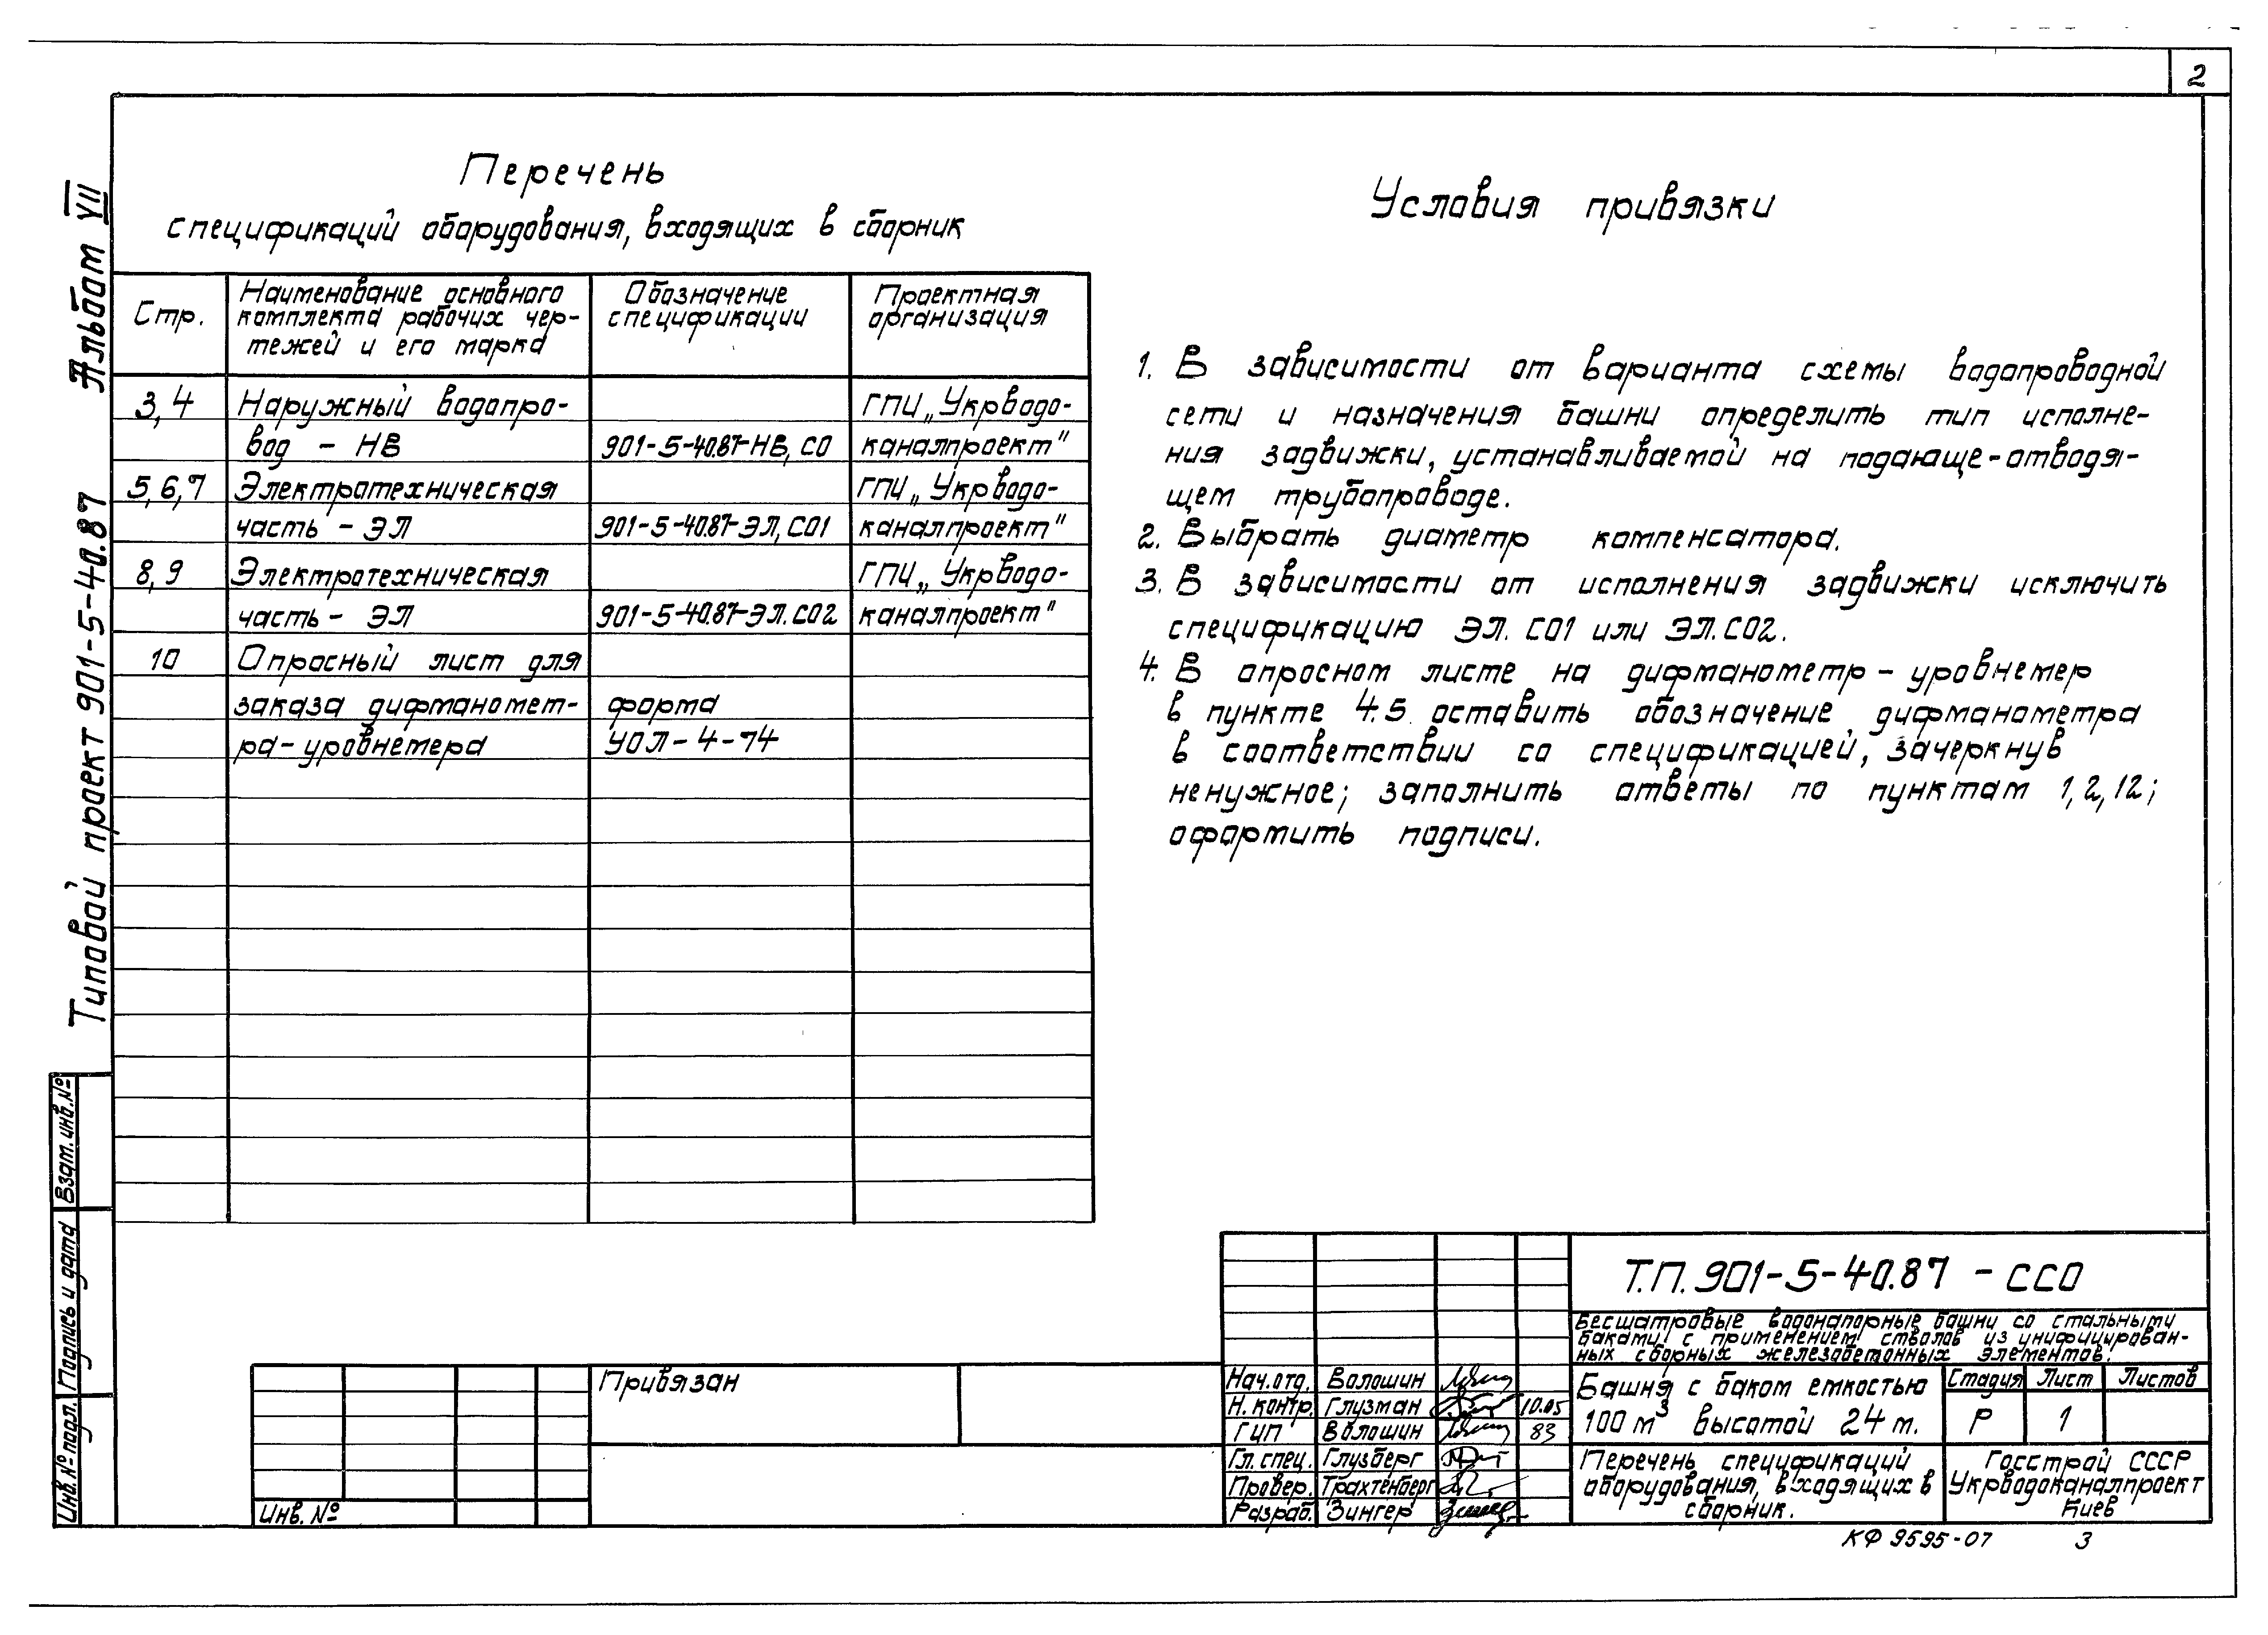 2
Альбом VII
Типовой проект 901-5-40.87
Перечень
спецификаций оборудования, входящих в сборник
Стр.
Наименование основного
комплекта рабочих чер-
тежей и его марка
Обозначение
спецификации
Проектная
организация
3,4 Наружный водопро- ГПИ „Укрводо-
вод - НВ 901-5-40.87-НВ, СО каналпроект"
5,6,7 Электротехническая ГПИ „Укрводо-
часть - ЭЛ 901-5-40.87-ЭЛ, СО1 каналпроект"
8,9 Электротехническая ГПИ „Укрводо-
часть - ЭЛ 901-5-40.87-ЭЛ.СО2 каналпроект"
10 Опросный лист для
заказа дифманомет- форма
ра-уровнемера УОЛ-4-74
Условия привязки
1. В зависимости от варианта схемы водопроводной
сети и назначения башни определить тип исполне-
ния задвижки, устанавливаемой на подающе-отводя-
щем трубопроводе.
2. Выбрать диаметр компенсатора.
3. В зависимости от исполнения задвижки исключить
спецификацию ЭЛ. СО1 или ЭЛ.СО2.
4. В опросном листе на дифманометр - уровнемер
в пункте 4.5 оставить обозначение дифманометра
в соответствии со спецификацией, зачеркнув
ненужное; заполнить ответы по пунктам 1, 2, 12;
оформить подписи.
Взам. инв. №
Подпись и дата
Инв. № подл.
Привязан
Инв. №
Т.П. 901-5-40.87 - ССО
Бесшатровые водонапорные башни со стальными
баками с применением стволов из унифицирован-
ных сборных железобетонных элементов.
Нач. отд. Волошин
Н. контр. Глузман 10.05
ГИП Волошин 83
Гл. спец. Глузберг
Провер. Трахтенберг
Разраб. Зингер
Башня с баком емкостью
100 м³ высотой 24 м.
Стадия Лист Листов
Р 1
Перечень спецификаций
оборудования, входящих в
сборник.
Госстрой СССР
Укрводоканалпроект
Киев
КФ 9595-07 3